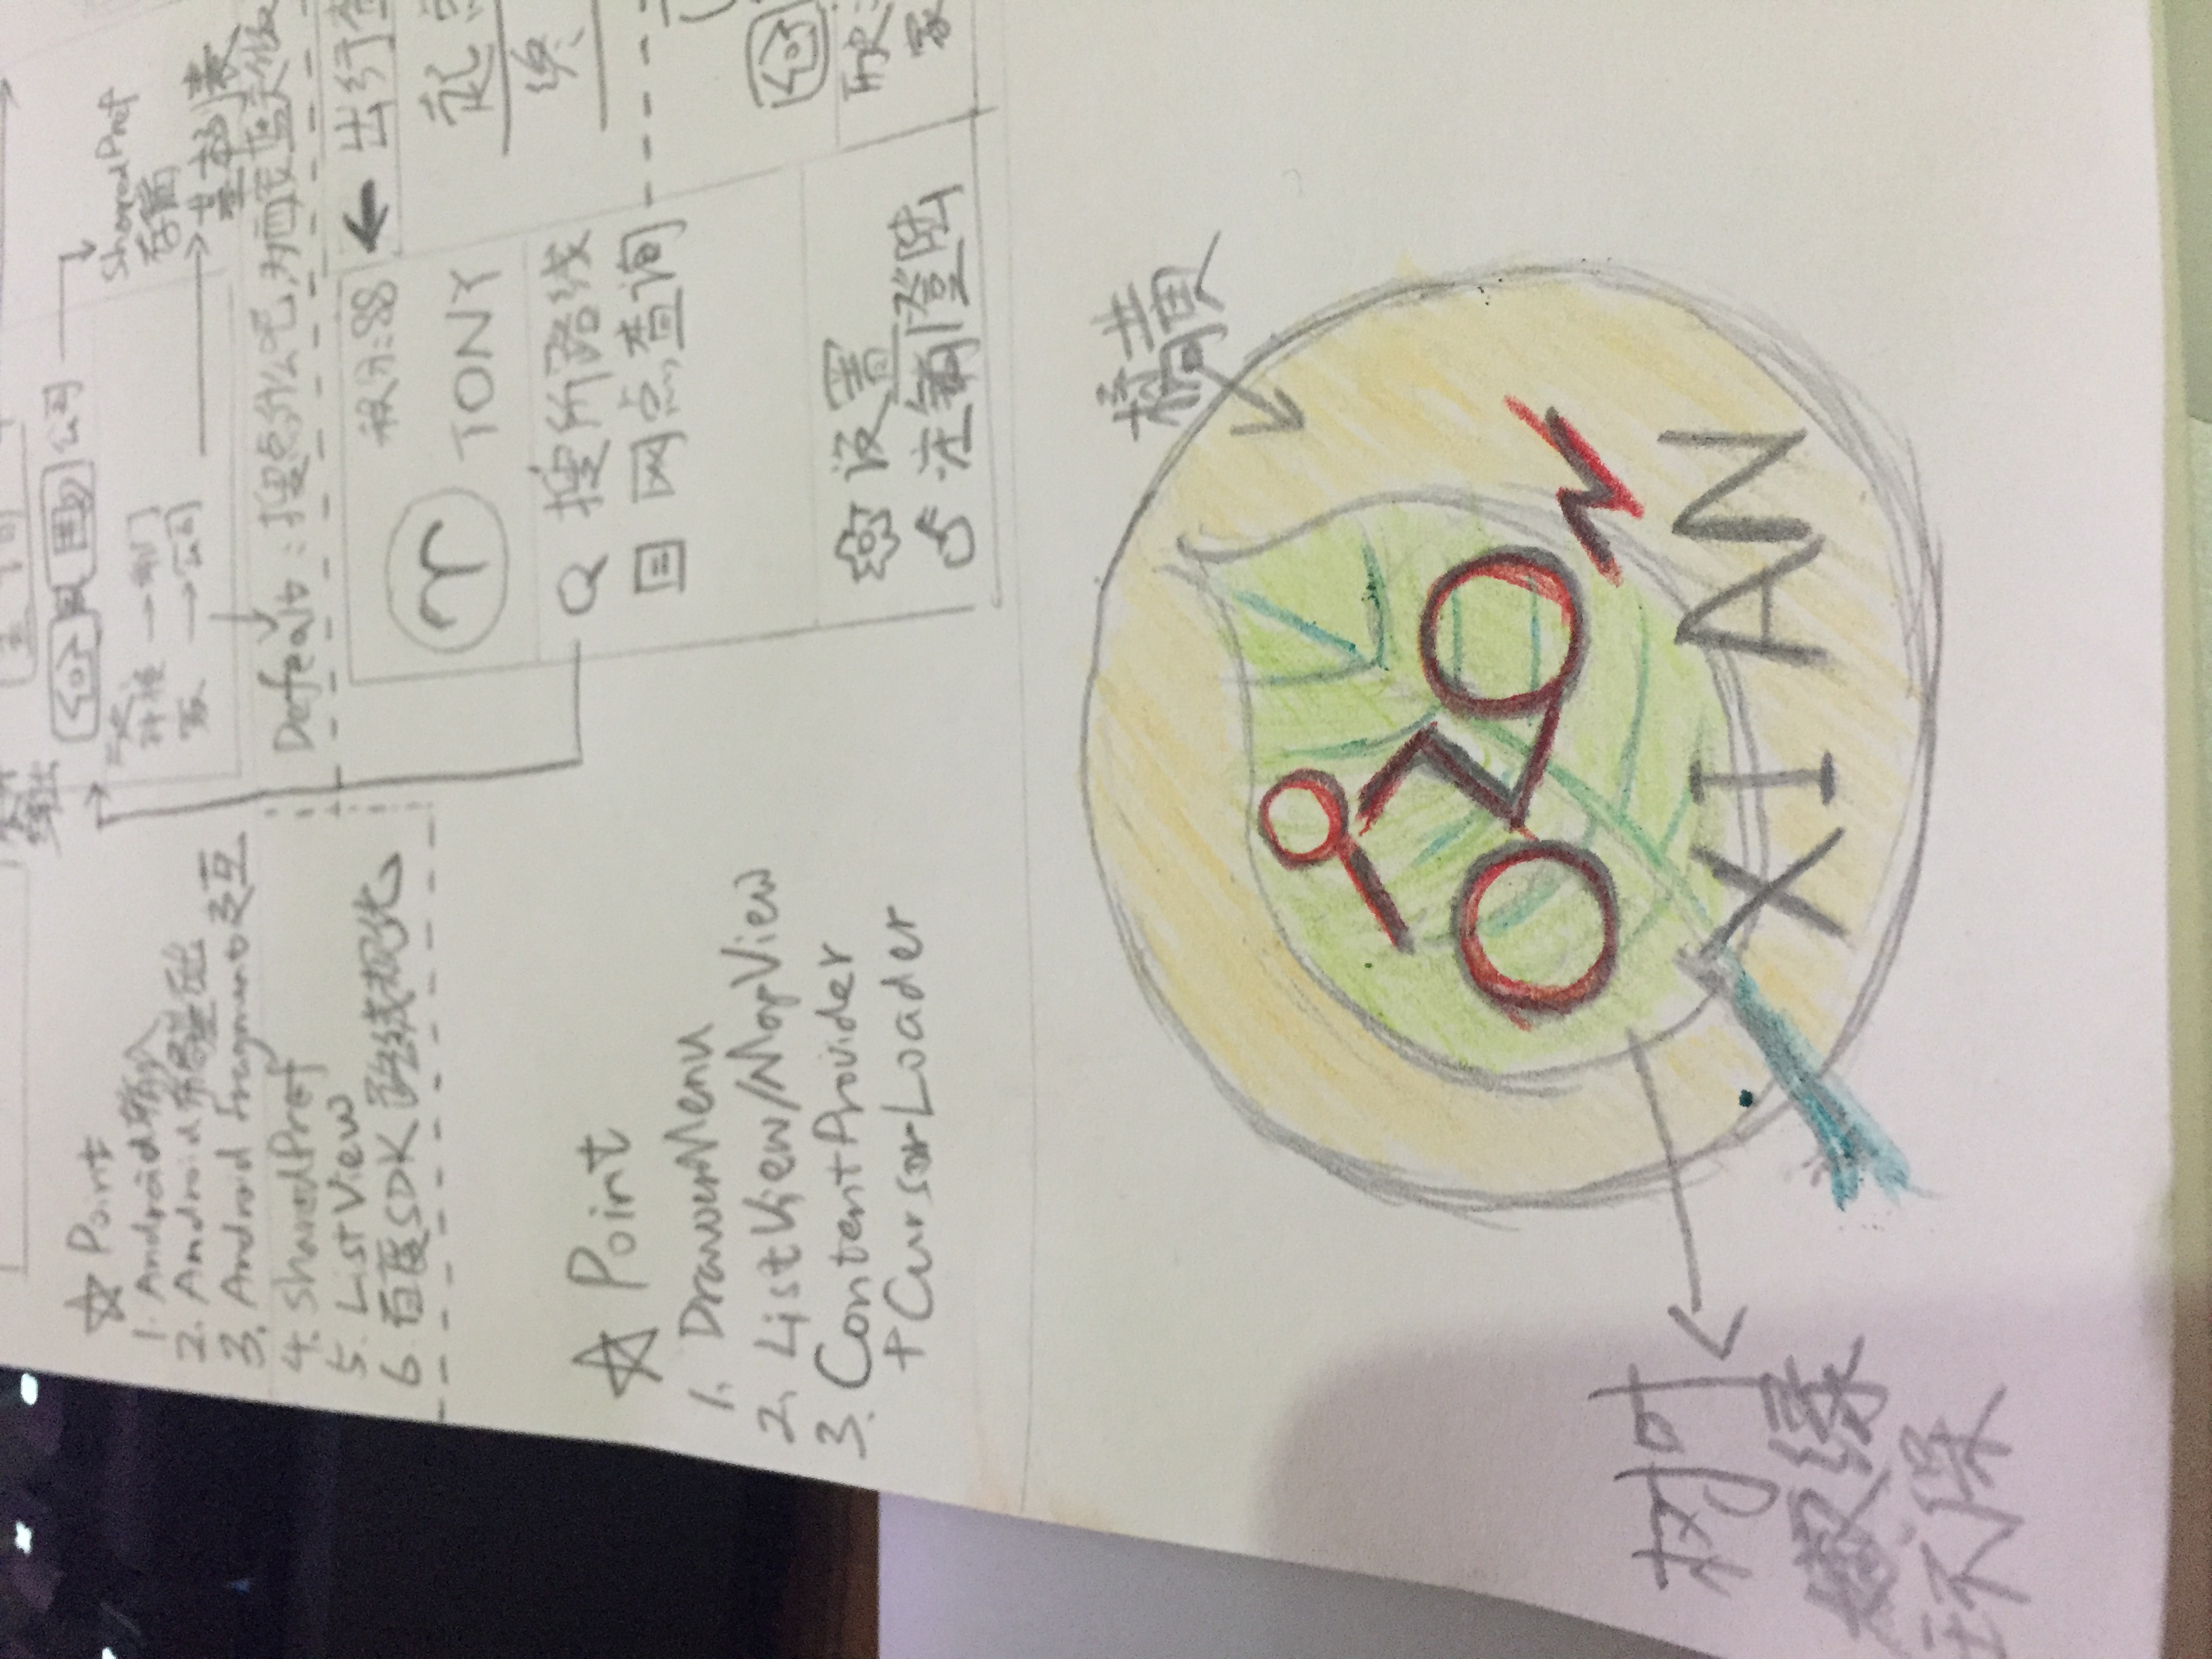 ☆ Point
1. Android输入
2. Android布局基础
3. Android fragment交互
4. SharedPref
5. ListView
6 百度SDK 路线规化
公司
SharedPref
存储
→部门
家 →公司
Defealt: 搜点什么吧,为西安蓝天
积分:88
TONY
搜所路线
网点查询
设置
注销/登陆
← 出行查
起点
终
家
☆ Point
1. DrawerMenu
2. ListView/MapView
3. ContentProvider
+CursorLoader
橘黄
XIAN
树叶
嫩绿
环保